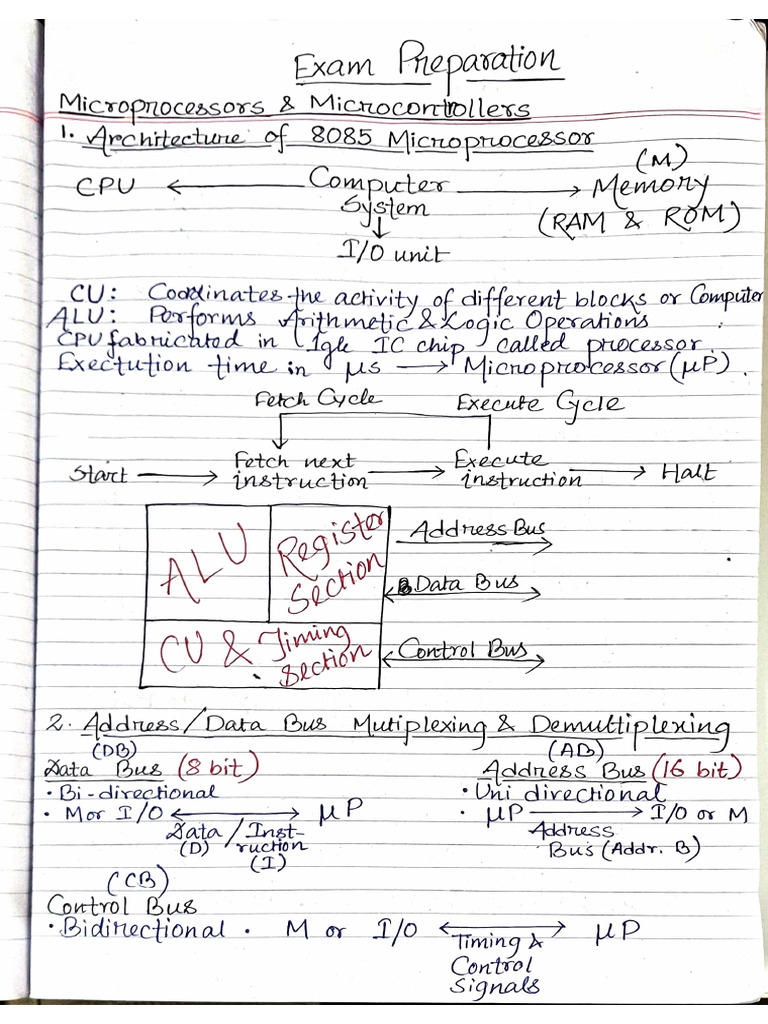 Exam Preparation
Microprocessors & Microcontrollers
1. Architecture of 8085 Microprocessor
CPU ← Computer System → Memory (M)
(RAM & ROM)
↓
I/O unit
CU: Coordinates the activity of different blocks or Computer
ALU: Performs Arithmetic & Logic Operations
CPU fabricated in 1gle IC chip called processor.
Exectution time in μs → Microprocessor (μP).
Fetch Cycle Execute Cycle
Start → Fetch next instruction → Execute instruction → Halt
ALU Register Section
CU & Timing Section
Address Bus
Data Bus
Control Bus
2. Address/Data Bus Mutiplexing & Demultiplexing
(DB) (AB)
Data Bus (8 bit) Address Bus (16 bit)
• Bi-directional • Uni directional
• M or I/O ↔ μP • μP → I/O or M
Data / Inst- Address
(D) ruction Bus (Addr. B)
(I)
(CB)
Control Bus
• Bidirectional • M or I/O ↔ μP
Timing &
Control
Signals